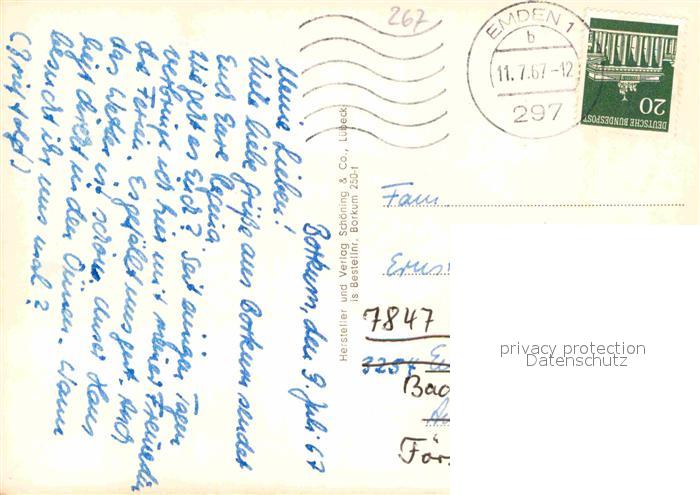 267
EMDEN 1
b
11.7.67-12
297
20
DEUTSCHE BUNDESPOST
Borkum, den 9. Juli 67
Meine Lieben!
Viele liebe Grüße aus Borkum sendet
Euch Eure Regina
Wie geht es Euch? Seit einigen Tagen
verbringe ich hier mit meiner Freundin
die Ferien. Es gefällt uns gut. Auch
das Wetter ist schön. Unser Haus
liegt direkt in den Dünen. Wann
besucht ihr uns mal?
(Brief folgt)
Hersteller und Verlag Schöning & Co., Lübeck
is Bestellnr. Borkum 250-1
Fam.
Erns
7847
3254
Bad
För
privacy protection
Datenschutz